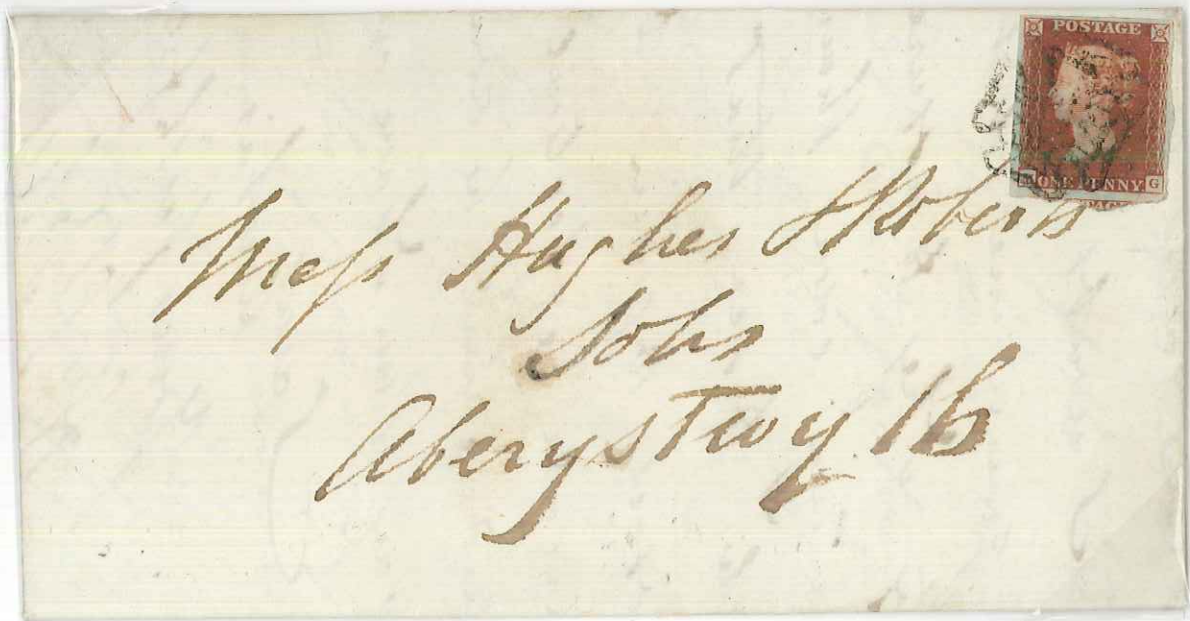 POSTAGE
ONE PENNY G
Mess Hughes & Roberts
Sols
Aberystwyth